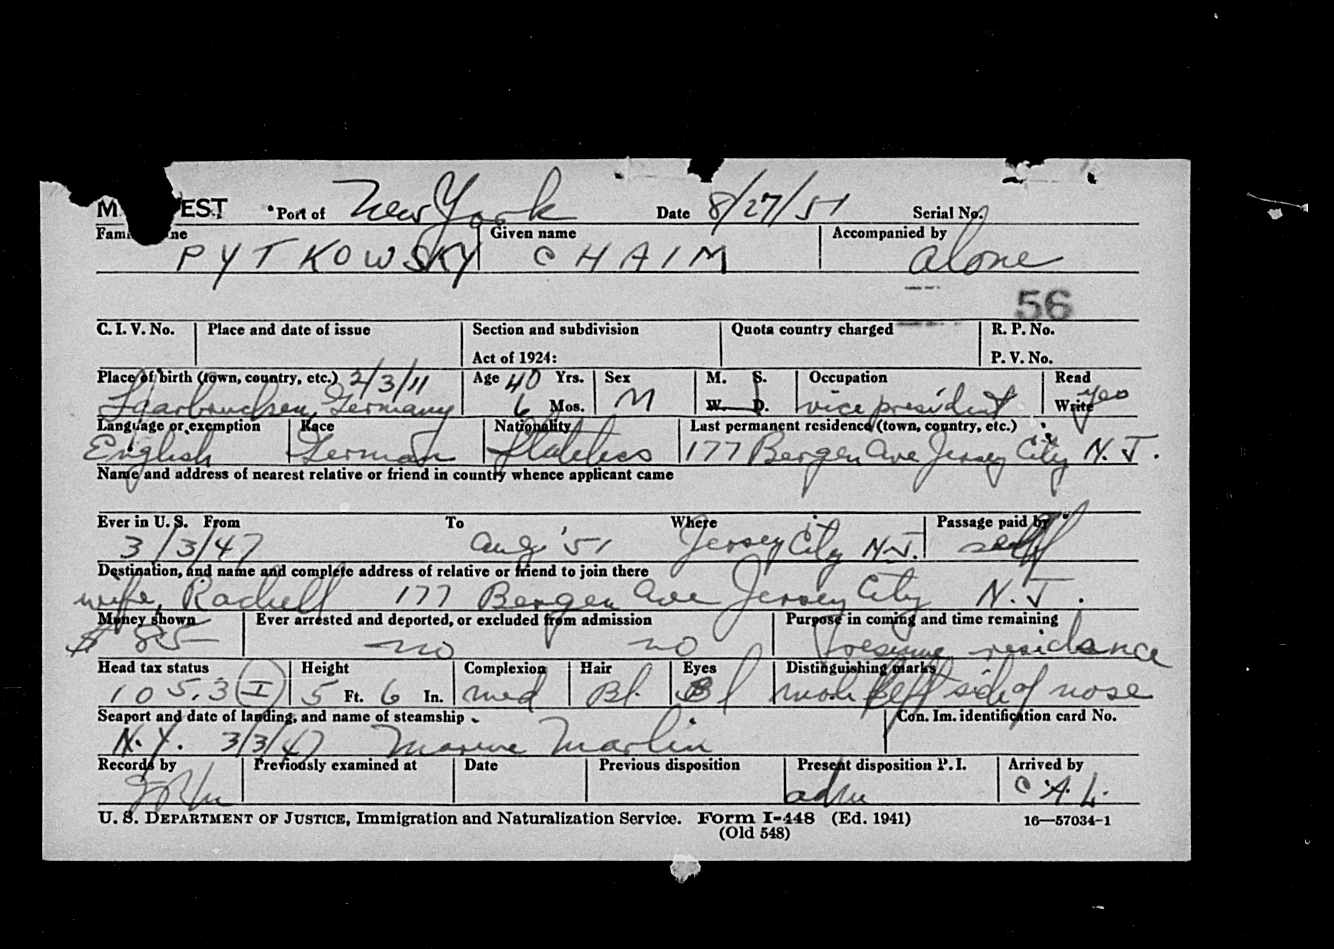 EST Port of New York Date 8/27/51 Serial No.
Given name Accompanied by
PYTKOWSKY CHAIM alone
56
C. I. V. No. Place and date of issue Section and subdivision Quota country charged R. P. No.
Act of 1924: P. V. No.
Place of birth (town, country, etc.) 2/3/11 Age 40 Yrs. Sex M. S. Occupation Read yes
Saarbruchsen, Germany 6 Mos. M W. D. vice president Write
Language or exemption Race Nationality Last permanent residence (town, country, etc.)
English German Stateless 177 Bergen Ave Jersey City N. J.
Name and address of nearest relative or friend in country whence applicant came
Ever in U. S. From To Where Passage paid by
3/3/47 Aug '51 Jersey City N.J. self
Destination, and name and complete address of relative or friend to join there
wife, Rachell 177 Bergen Ave Jersey City N. J.
Money shown Ever arrested and deported, or excluded from admission Purpose in coming and time remaining
$ 85 no no resume residence
Head tax status Height Complexion Hair Eyes Distinguishing marks
105.3 (I) 5 Ft. 6 In. med Bl. Bl mole left side of nose
Seaport and date of landing, and name of steamship Con. Im. identification card No.
N. Y. 3/3/47 Marine Marlin
Records by Previously examined at Date Previous disposition Present disposition P. I. Arrived by
adm C. A. L.
U. S. DEPARTMENT OF JUSTICE, Immigration and Naturalization Service. Form I-448 (Ed. 1941) 16—57034-1
(Old 548)